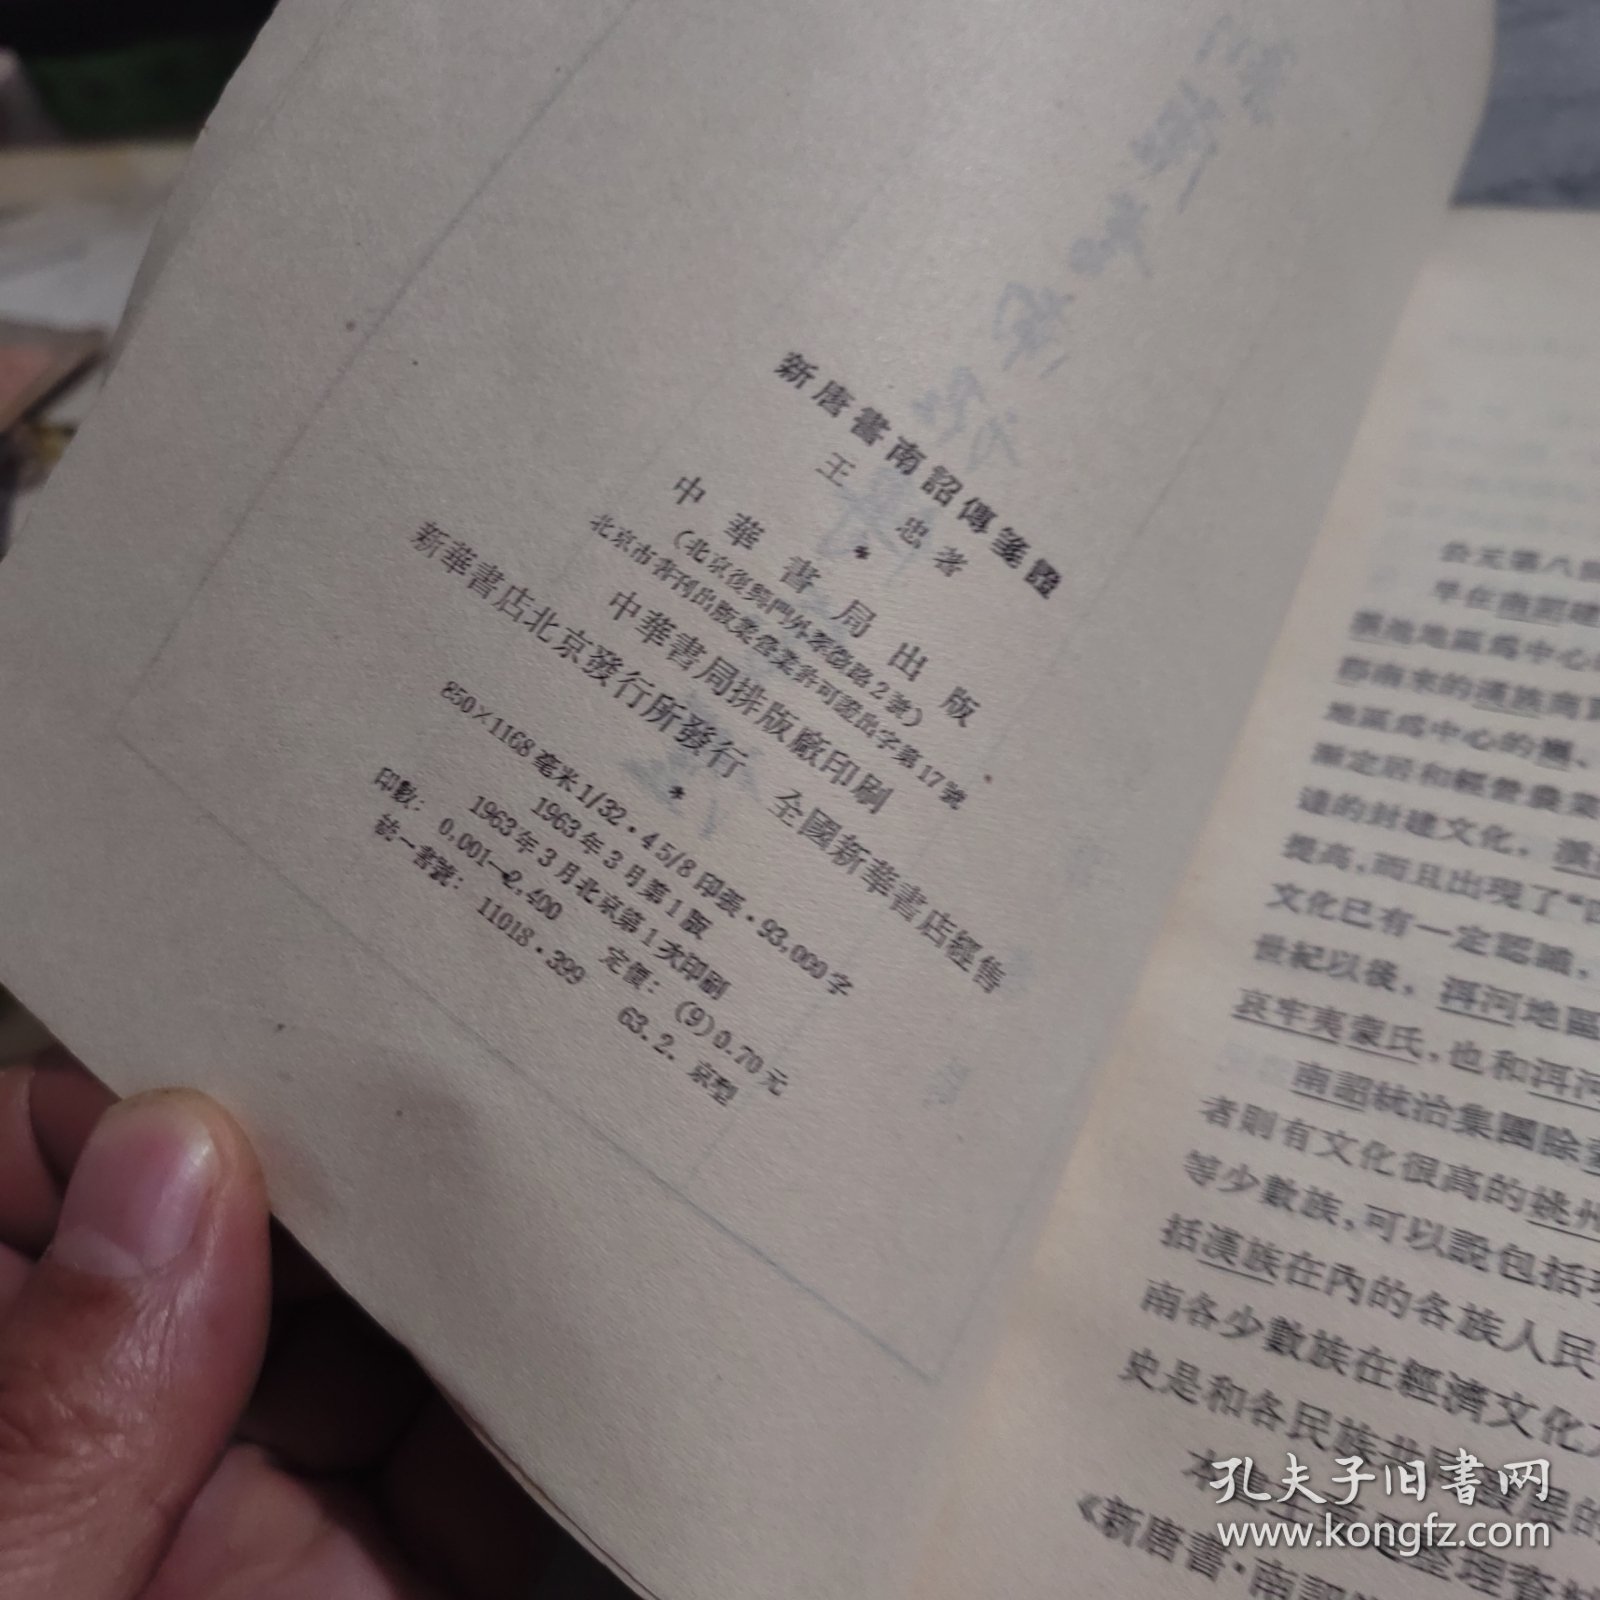 新唐書南詔傳箋證
王忠著
*
中華書局出版
（北京復興門外翠微路2號）
北京市書刊出版業營業許可證出字第17號
中華書局排版廠印刷
新華書店北京發行所發行 全國新華書店經售
*
850×1168毫米1/32·45/8印張·93,000字
1963年3月第1版
1963年3月北京第1次印刷
印數：0,001—2,400 定價：(9)0.70元
統一書號：11018·399 63.2.京型
公元第八
早在南詔建
滇池地區爲中心
郡南來的漢族商
地區爲中心的
漸定居和經營農業
達的封建文化，
提高，而且出現了“
文化已有一定認識，
世紀以後，洱河地區
哀牢夷蒙氏，也和洱河
南詔統治集團除
者則有文化很高的姚州
等少數族，可以說包括
括漢族在內的各族人民
南各少數族在經濟文化
史是和各民族共同發展的
本書
《新唐書·南詔
孔夫子旧书网
www.kongfz.com